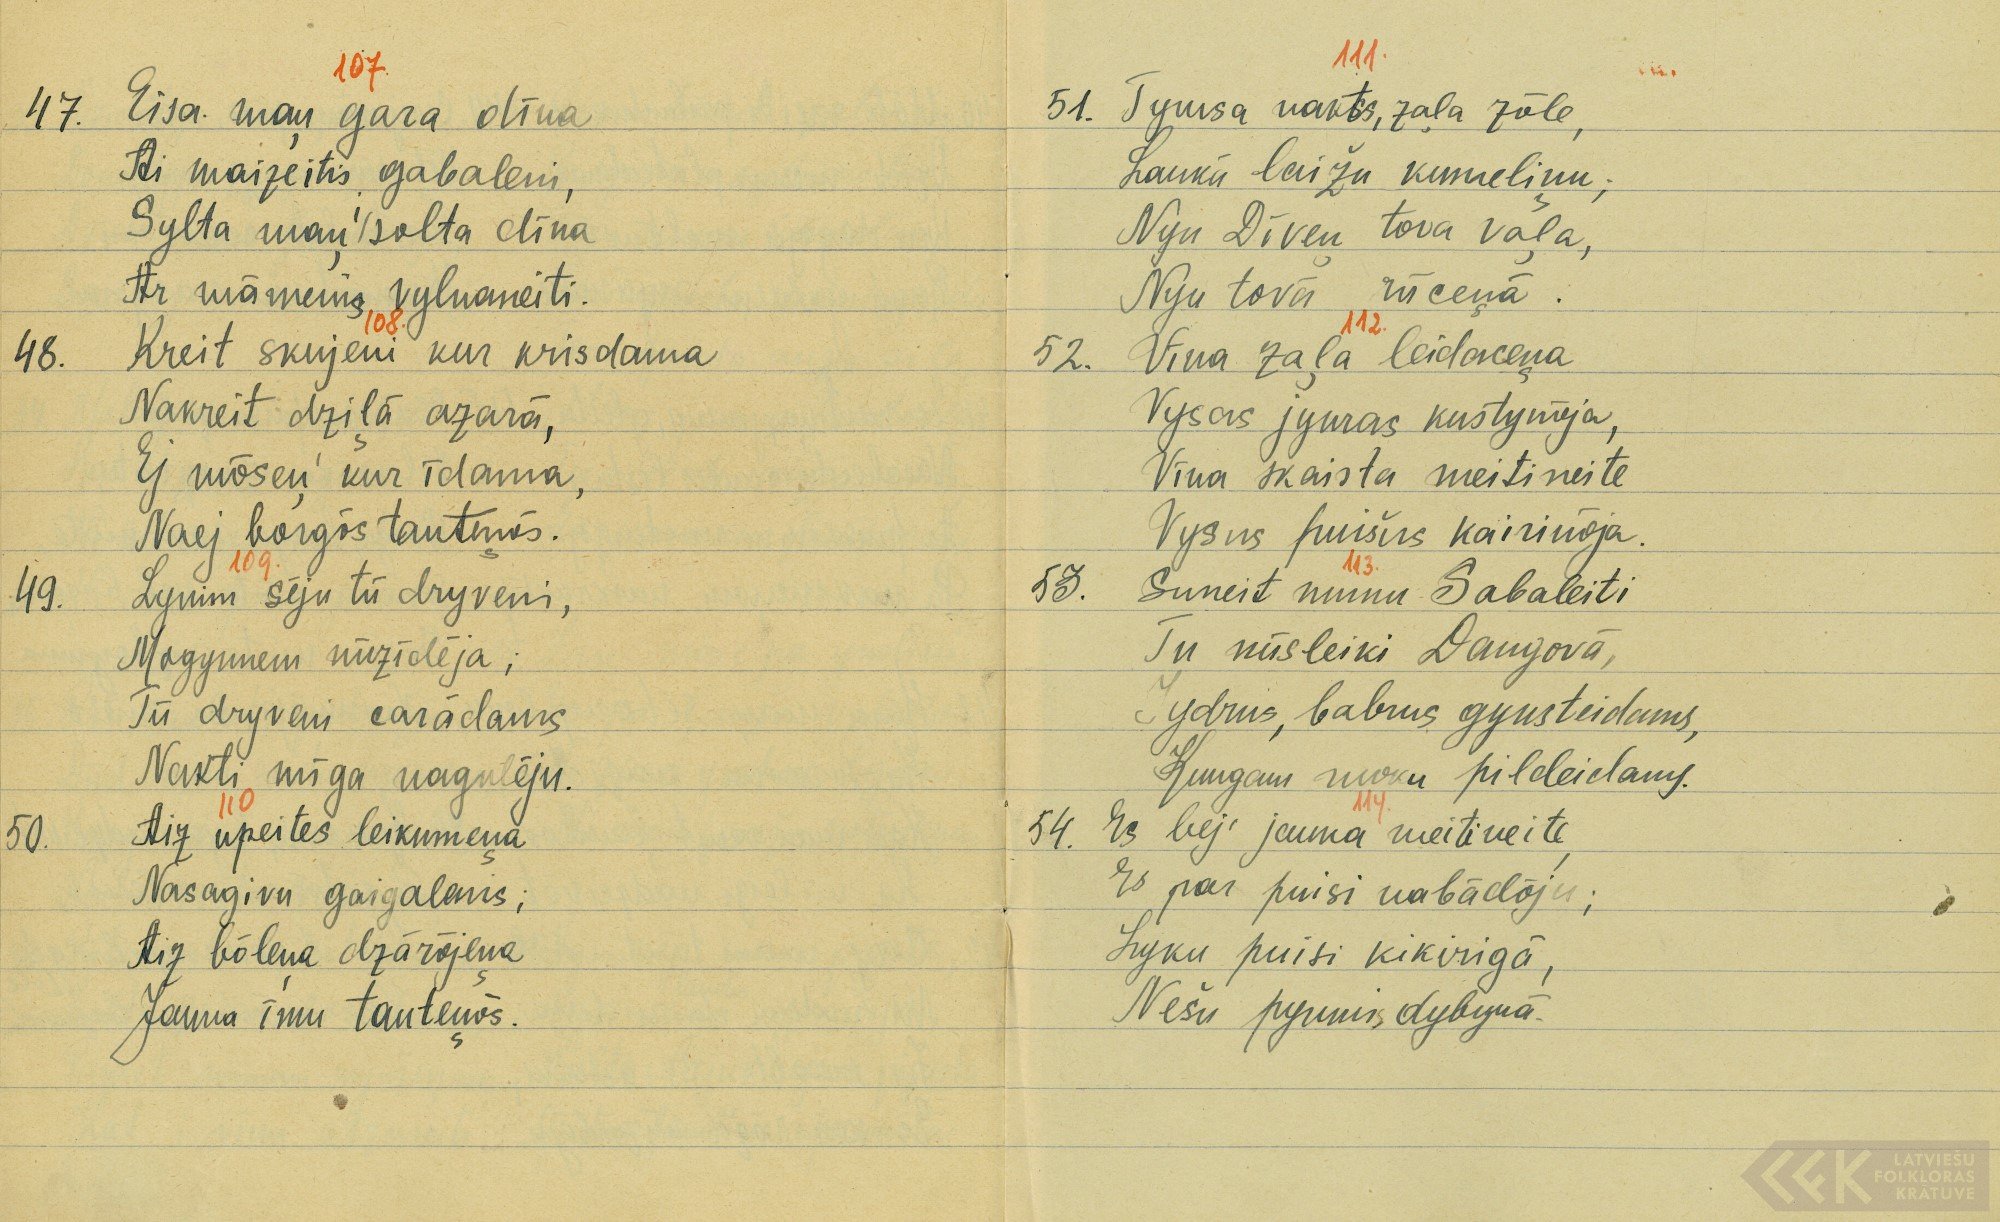 107.
47. Eisa maņ gara dīna
Ai maizeitis gabaleni,
Sylta maņ' solta dīna
Ar māmeņis vylnaneiti.
108.
48. Kreit skujeni kur krisdama
Nakreit dziļā azarā,
Ej mōseņ' kur īdama,
Naej borgōs tauteņōs.
109.
49. Lynim sēju tū dryveni,
Mogynem nūzīdēja;
Tū dryveni carādams
Nakti mīga nagulēju.
110
50. Aiz upeites leikumeņa
Nasagivu gaigalenis;
Aiz bōleņa dzārōjeņa
Jauna īmu tauteņōs.
111.
51. Tymsa nakts, zaļa zōle,
Laukā laižu kumeliņu;
Nyu Dīveņ tova vaļa,
Nyu tovā rūceņā.
112.
52. Vīna zaļa leidaceņa
Vysas jyuras kustynōja,
Vīna skaista meitineite
Vysus puišus kairinōja.
113.
53. Suneit munu Sabaleiti
Tu nūsleiki Daugovā,
Yydrus, babrus gyusteidams,
Kungam moku pildeidams.
114.
54. Es bej' jauna meitineite,
Es par puisi nabādōju;
Lyku puisi kikirigā,
Nešu pyrmis dybynā.
LATVIEŠU
FOLKLORAS
KRĀTUVE